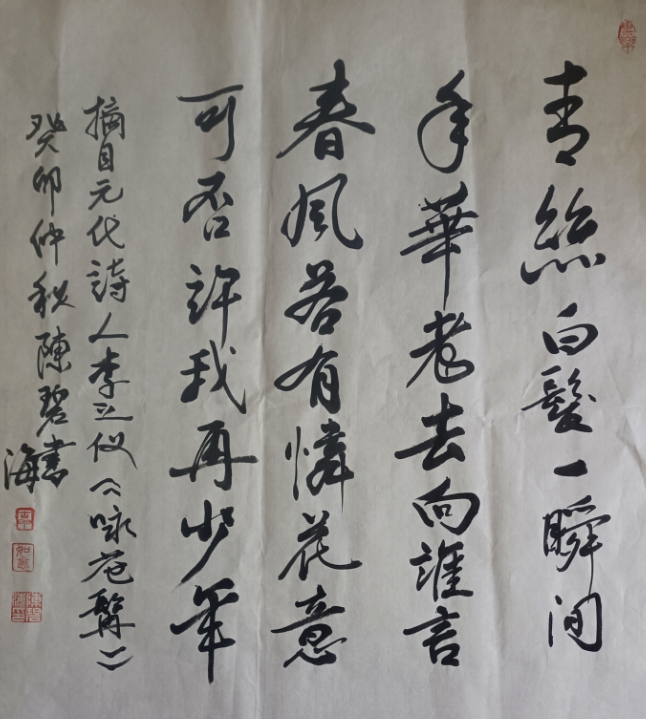 青絲白髮一瞬间
年華老去向誰言
春風若有憐花意
可否許我再少年
摘自元代詩人李之仪《咏苍髯》
癸卯仲秋陳碧海書